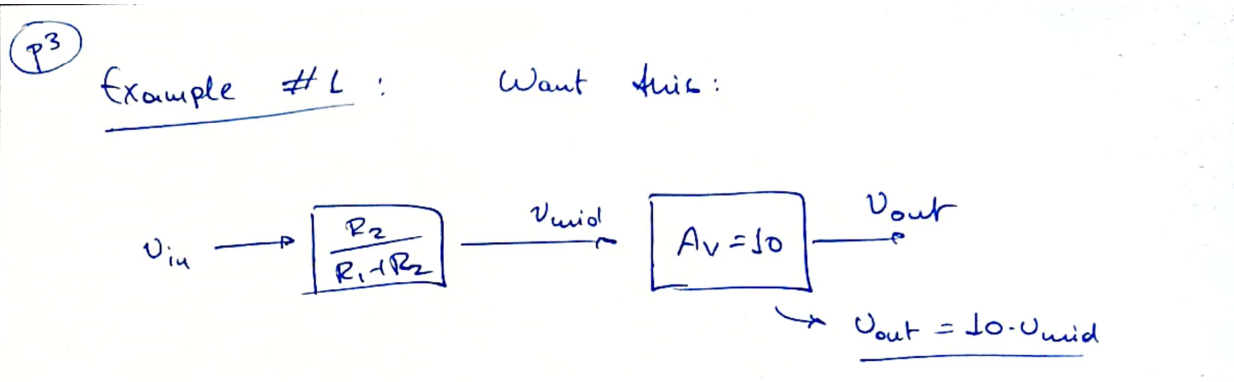 p3
Example #1: Want this:
v_in → R2 / (R1 + R2) v_mid Av = 10 v_out
v_out = 10 · v_mid